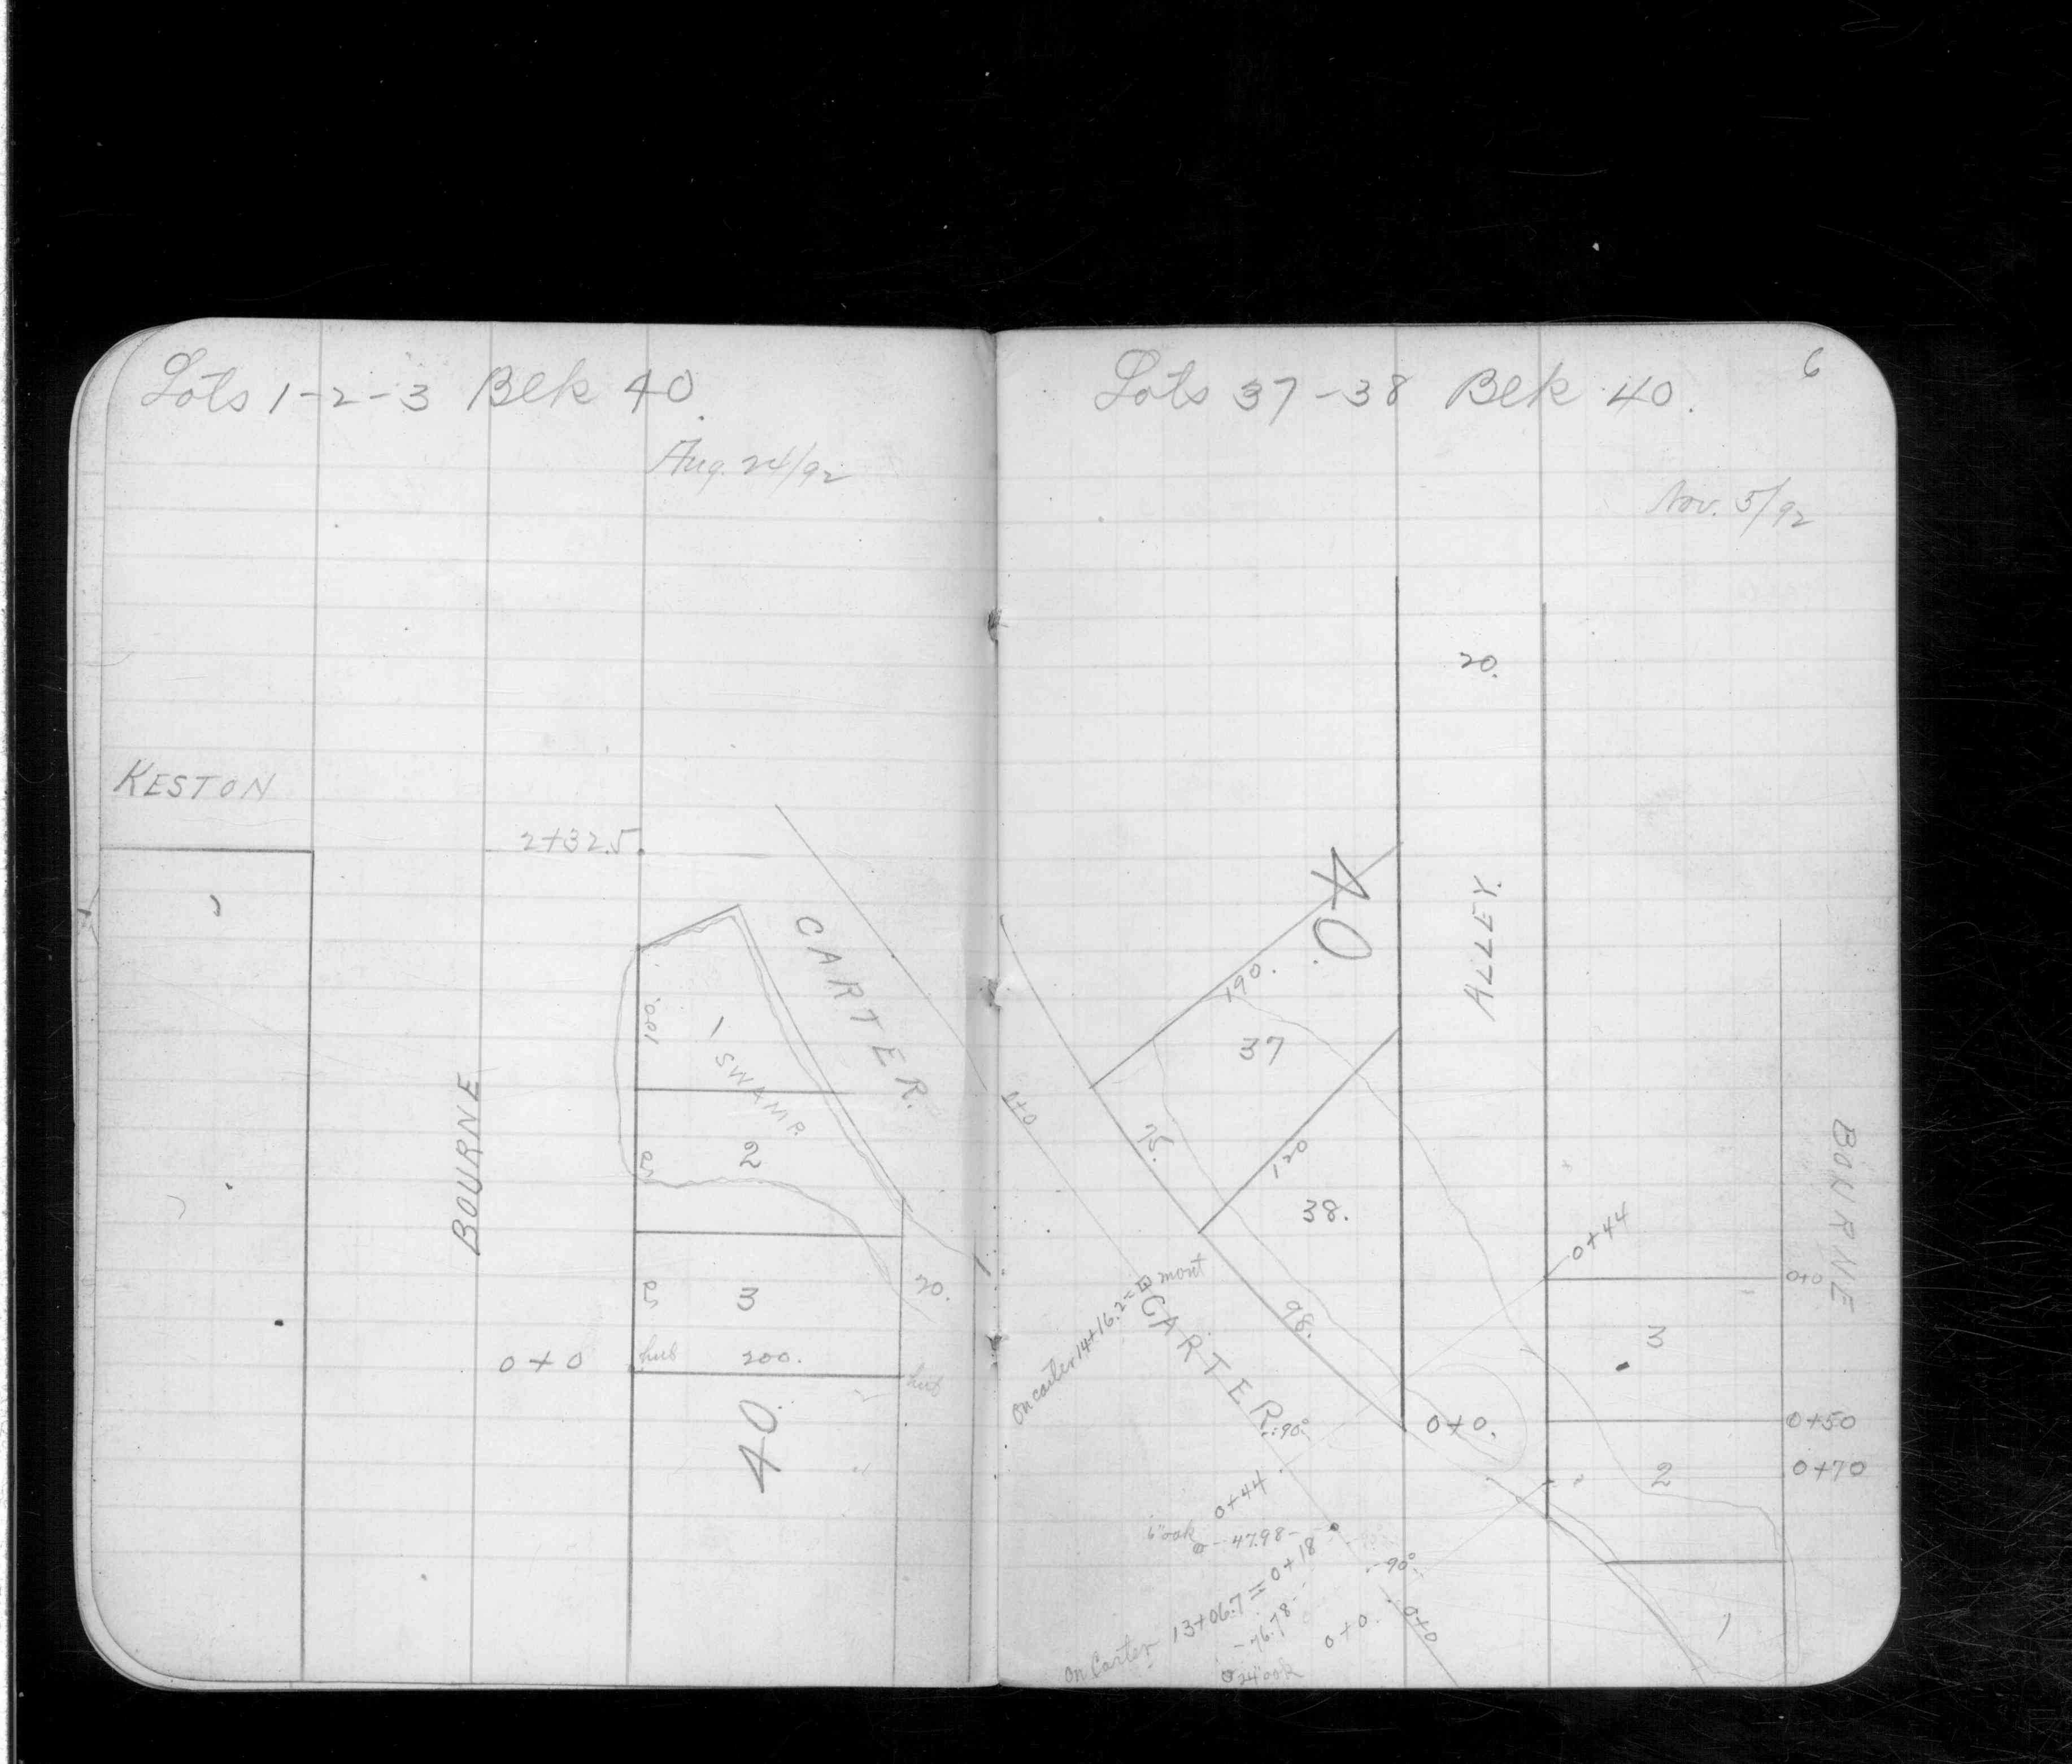 Lots 1-2-3 Blk 40.
Aug. 24/92
KESTON
2+32.5
CARTER.
100.
1
SWAMP.
BOURNE
2
3
20.
0+0
hub
200.
hub
40.
Lots 37-38 Blk 40.
6
Nov. 5/92
20.
40.
ALLEY.
190.
37
0+0
75.
120
38.
BOURNE
0+44
0+0
On Carter 14+16.2 = mont
CARTER
98.
3
90°
0+0.
0+50
2
0+70
0+44
6" oak
47.98
On Carter 13+06.7 = 0+18
90°
76.78
0+0.
0+0
24" oak
1